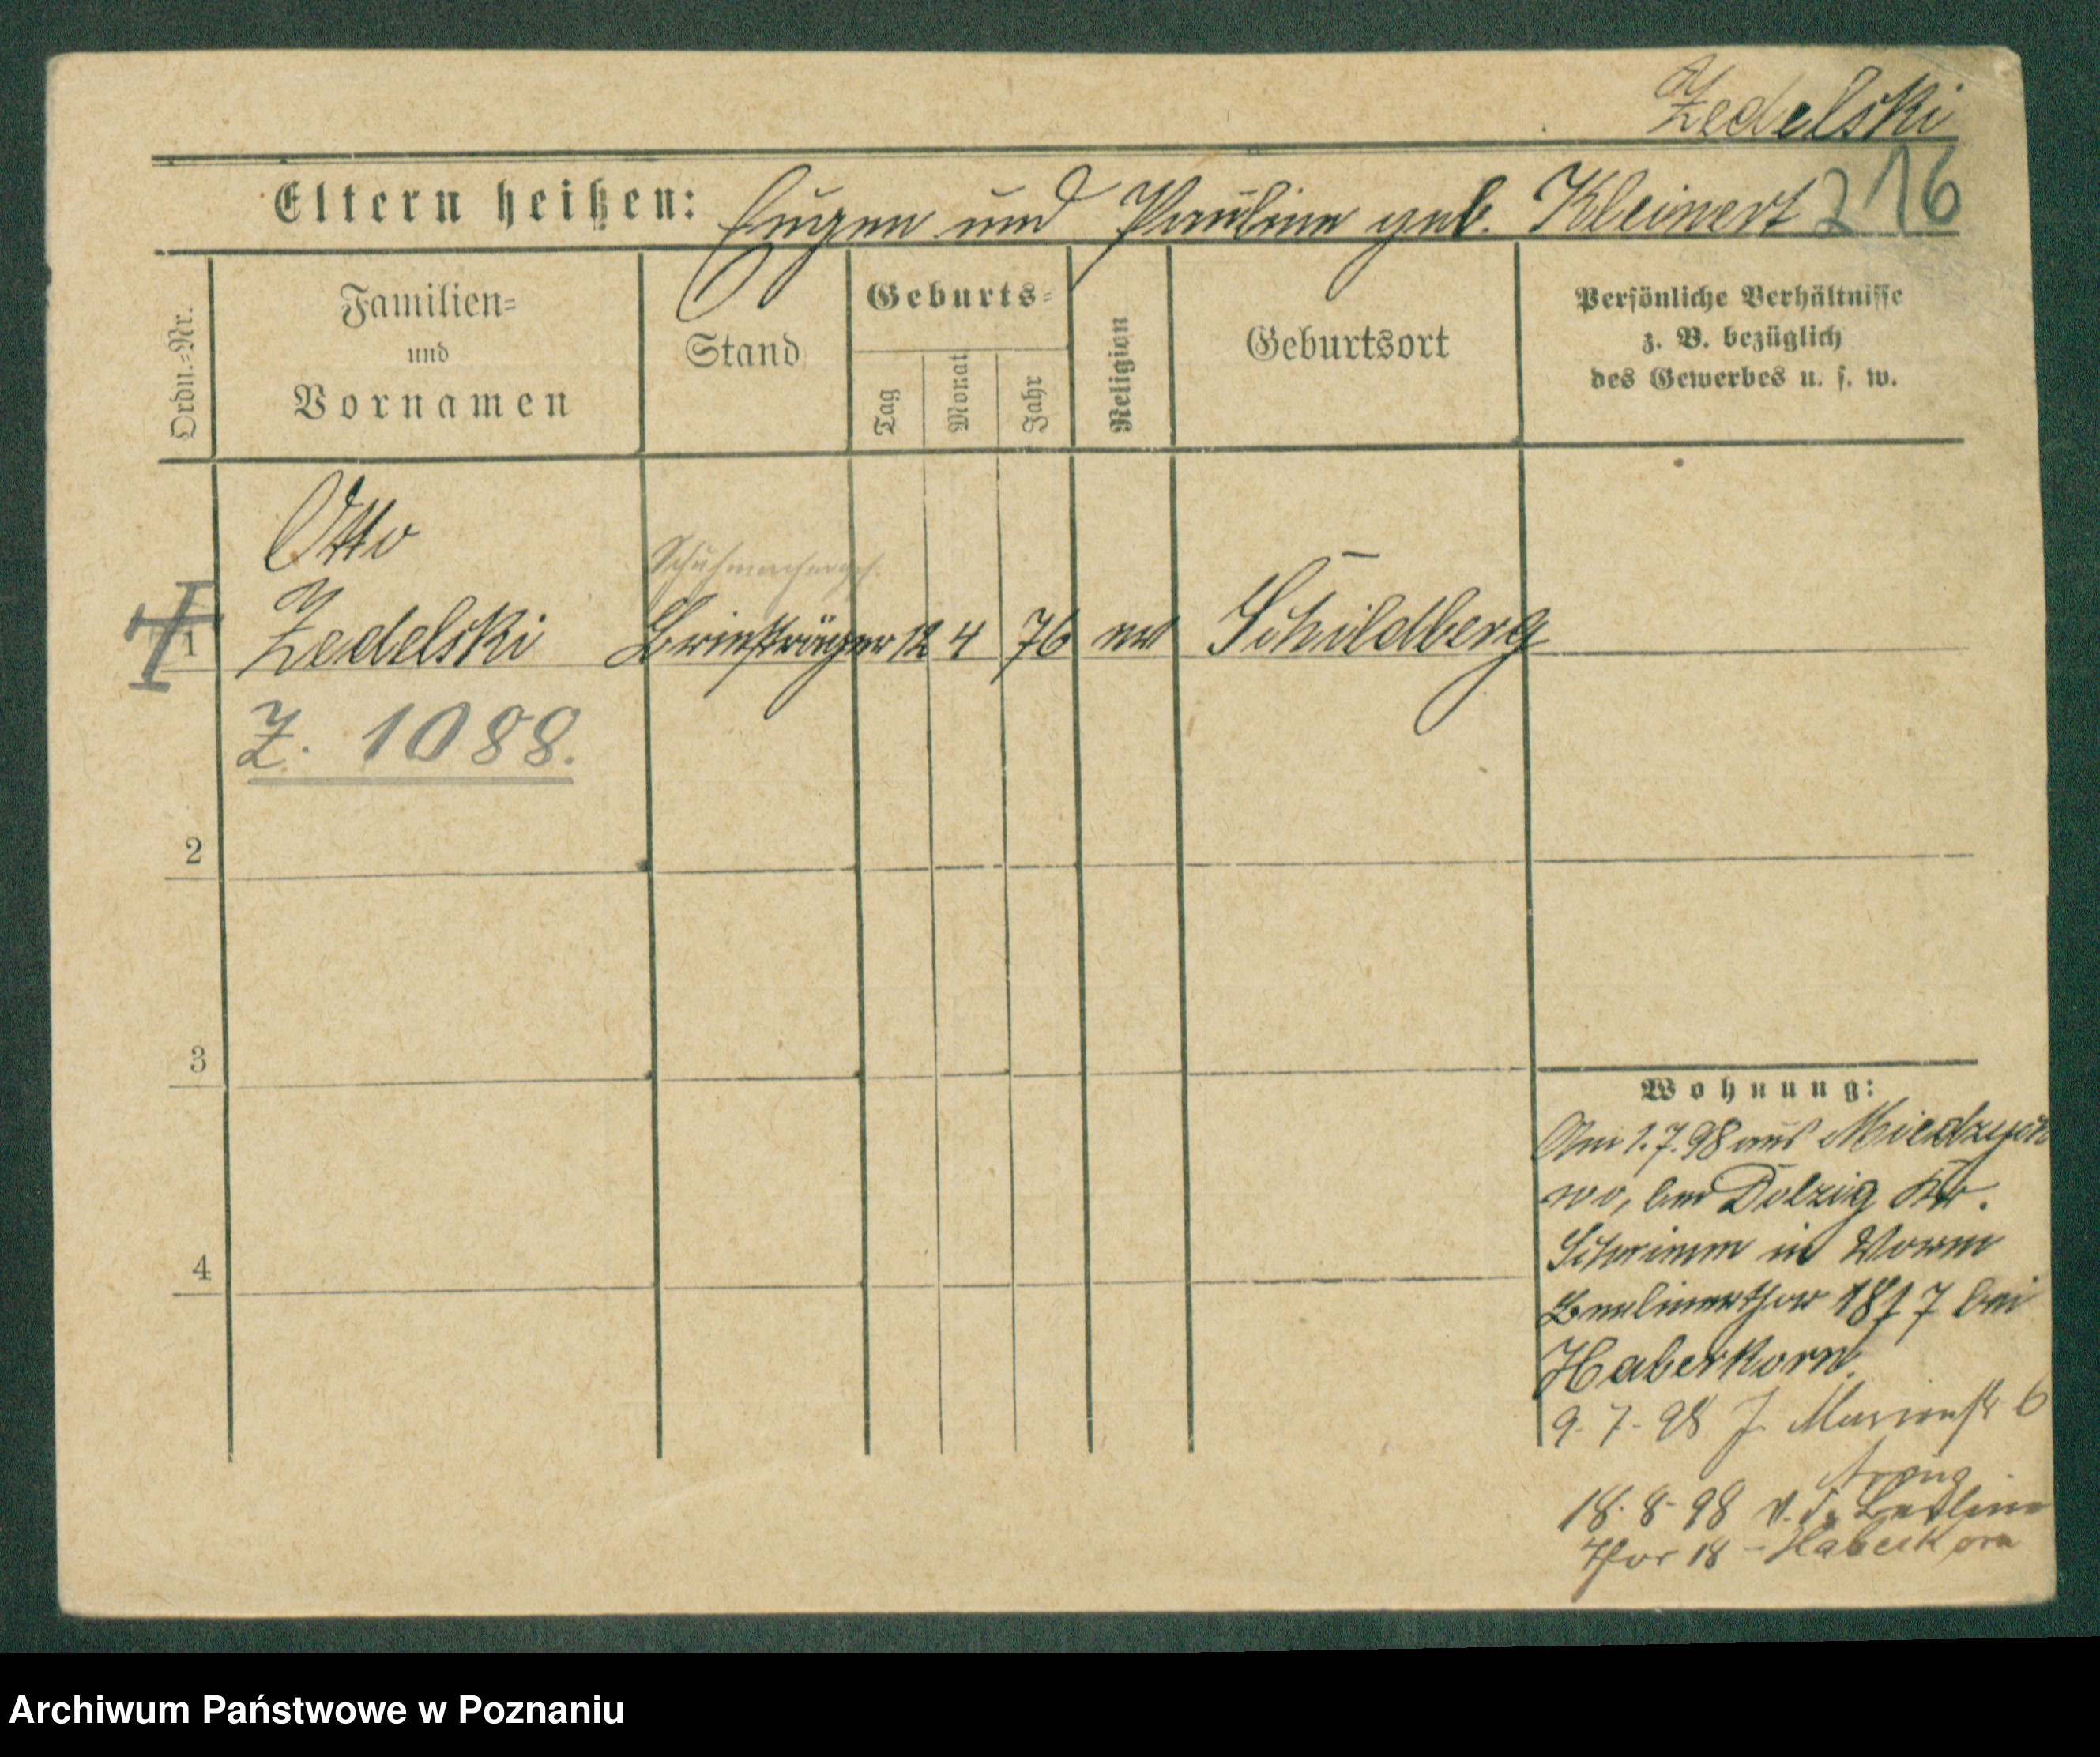 Zedelski
216
Eltern heißen: Eugen und Pauline geb. Kleinert
Ordn.=Nr.
Familien=
und
Vornamen
Stand
Geburts=
Tag
Monat
Jahr
Religion
Geburtsort
Persönliche Verhältnisse
z. B. bezüglich
des Gewerbes u. s. w.
Otto
Schuhmacherges.
1 Zedelski Briefträger 12 4 76 ev Schildberg
Z. 1088.
2
3
4
Wohnung:
Am 1.7.98 aus
wo, bei Dolzig Kr.
Schrimm in
Berlinerthor 18 7 bei
Haberkorn.
9.7.98 J. Marienstr 6
18.8.98 v. d. Berliner
Thor 18 - Haberkorn
Archiwum Państwowe w Poznaniu